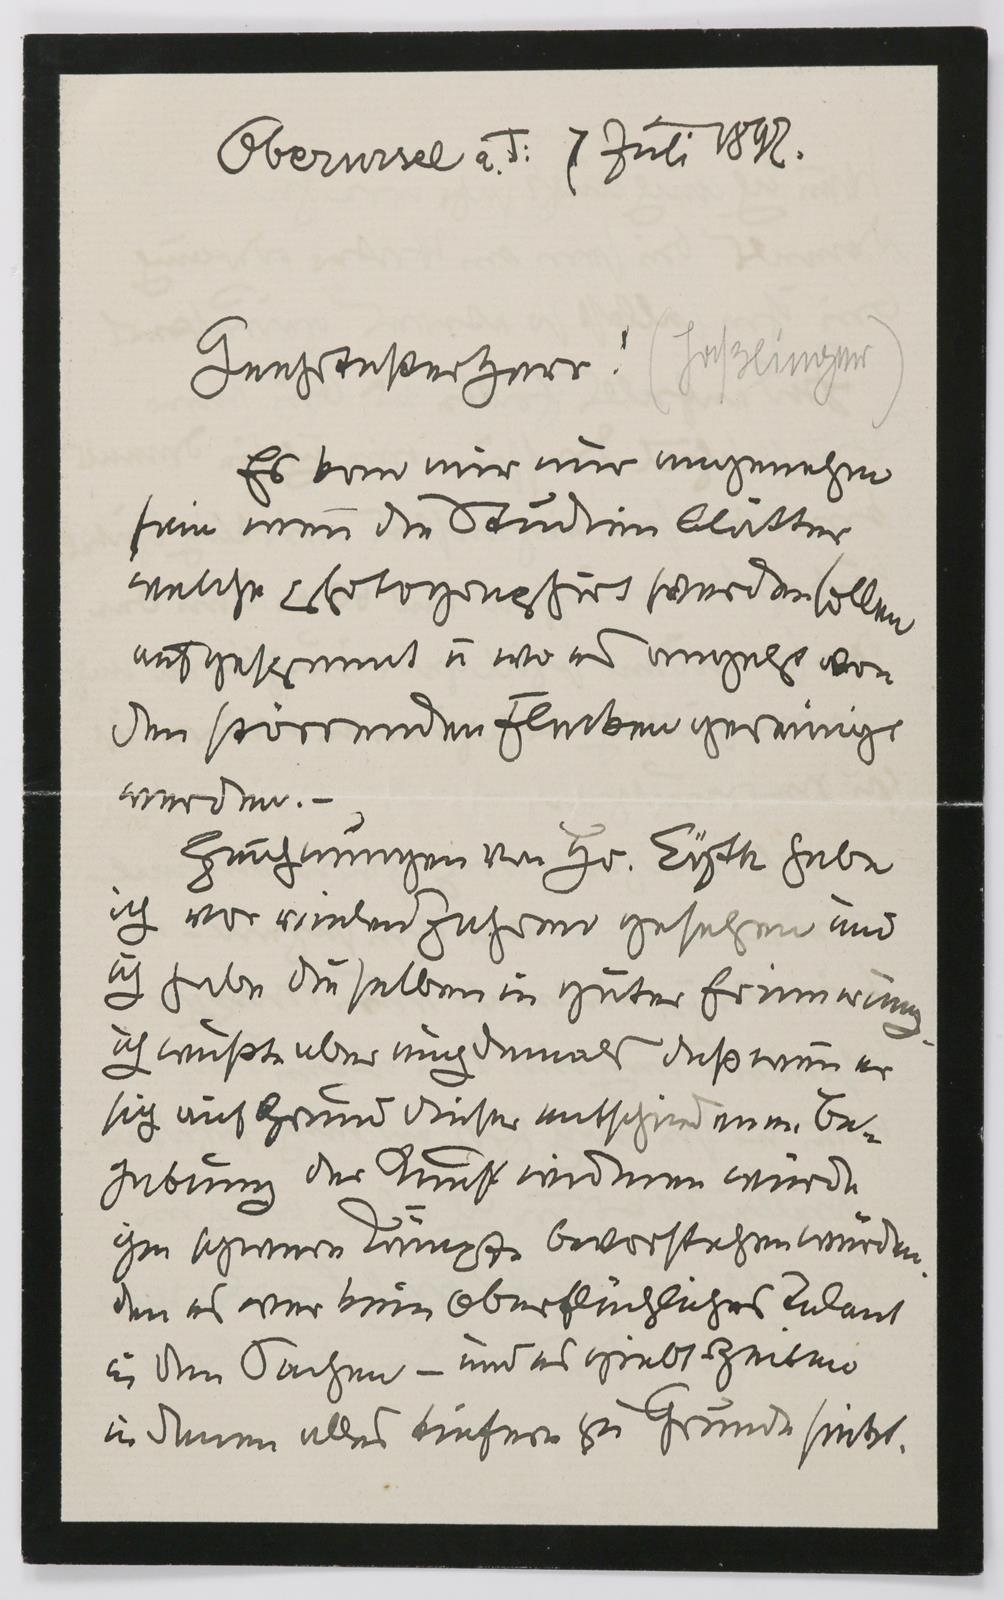 Oberursel a. T: 7 Juli 1892.
Geehrtester Herr! (Haßlinger)
Es kan mir nur angenehm
sein wen̄ die Studien blätter
welche photographirt werden sollen
aufgespannt u wo es angeht von
den störrenden Flecken gereinigt
werden. –
Zeichnungen von Hr. Eyth habe
ich vor vielen Jahren gesehen und
ich habe dieselben in guter Erinnerung
ich wußte aber auch damals daß wen̄ er
sich auf Grund dieser entschiedenen Be-
gabung der Kunst widmen würde
ihm schwere Kämpfe bevorstehen würden.
den es war kein Oberflächliches Talent
in den Sachen – und es giebt Zeiten
in denen alles tiefere zu Grunde sinkt.